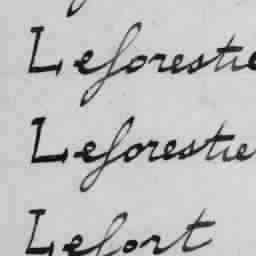 Leforestie
Leforestie
Lefort